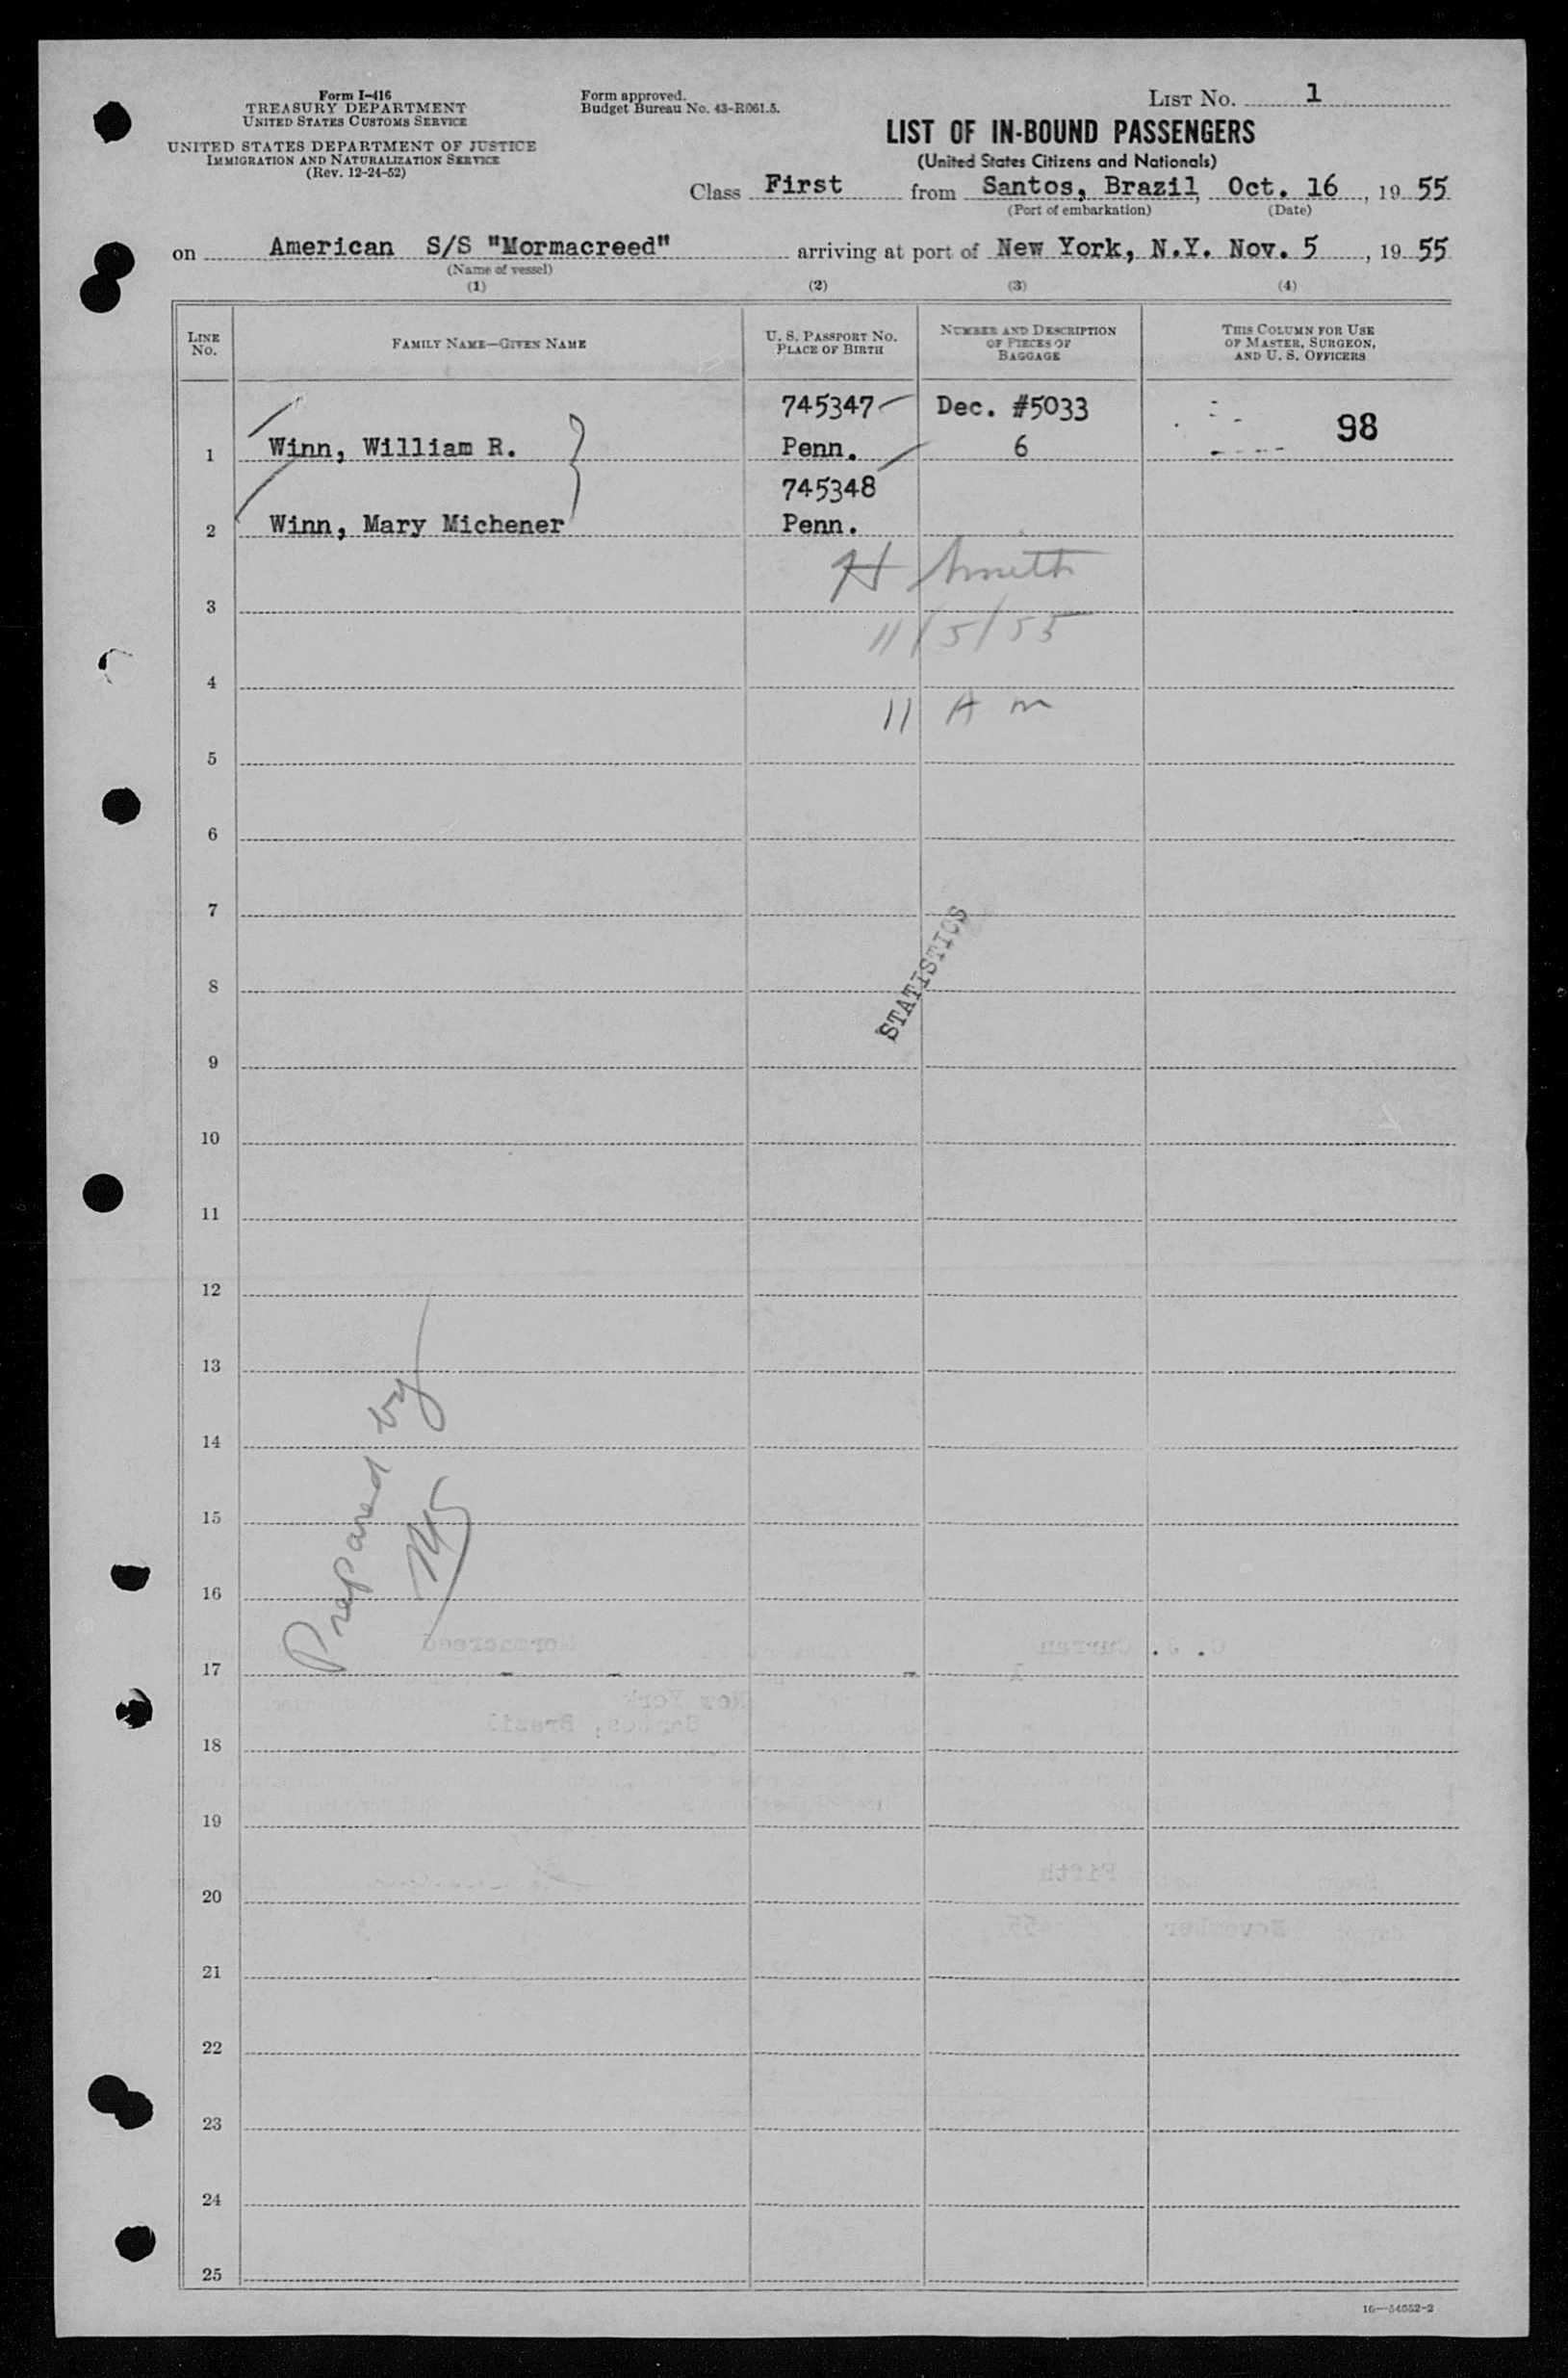 Form I-416
TREASURY DEPARTMENT
UNITED STATES CUSTOMS SERVICE
UNITED STATES DEPARTMENT OF JUSTICE
IMMIGRATION AND NATURALIZATION SERVICE
(Rev. 12-24-52)
Form approved.
Budget Bureau No. 43-R061.5.
LIST NO. 1
LIST OF IN-BOUND PASSENGERS
(United States Citizens and Nationals)
Class First from Santos, Brazil, Oct. 16, 19 55
(Port of embarkation) (Date)
on American S/S "Mormacreed" arriving at port of New York, N.Y. Nov. 5, 19 55
(Name of vessel)
(1) (2) (3) (4)
LINE NO.
FAMILY NAME—GIVEN NAME
U. S. PASSPORT NO.
PLACE OF BIRTH
NUMBER AND DESCRIPTION
OF PIECES OF
BAGGAGE
THIS COLUMN FOR USE
OF MASTER, SURGEON,
AND U. S. OFFICERS
745347 Dec. #5033
1 Winn, William R. Penn. 6 98
745348
2 Winn, Mary Michener Penn.
H Smith
3
11/5/55
4
11 A m
5
6
7
STATISTICS
8
9
10
11
12
13
14
Prepared by
15
16
17
18
19
20
21
22
23
24
25